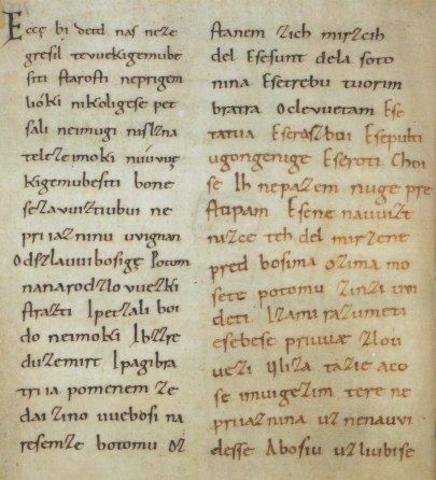 Ecce bi detd naſ neze
greſil tevuekigemube
ſiti ſtaroſti neprigem
lióki nikoligeſe pet
ſali neimugi niſlzna
telezemoki núuvue
kigemubeſiti bone
ſezavuiztiubui ne
priiazninu uvignan
Odſzlauuiboſige Potom
nanarodzlovuezki
ſtrazti Ipetzali boi
do neimoki Ibzzre
duzemirt Ipagibra
triia pomenem ze
dai zino uueboſi na
reſemze botomu oz
ſtanem zich mirzcih
del Eſeſunt dela ſoto
nina Eſetrebu tuorim
bratra Oclevuetam Eſe
tatua Eſerazboi Eſepulti
ugongenige Eſeroti Choi
ſe Ih nepazem nuge pre
ſtupam Eſene nauuizt
nazce teh del mirzene
pred boſima ozima mo
ſete potomu zinzi uvi
deti Izami razumeti
eſebeſe priuuæ zlou
uezi Uliza tazie aco
ſe imuigezim tere ne
priiaznina uznenauvi
deſſe Aboſiu uzliubiſe